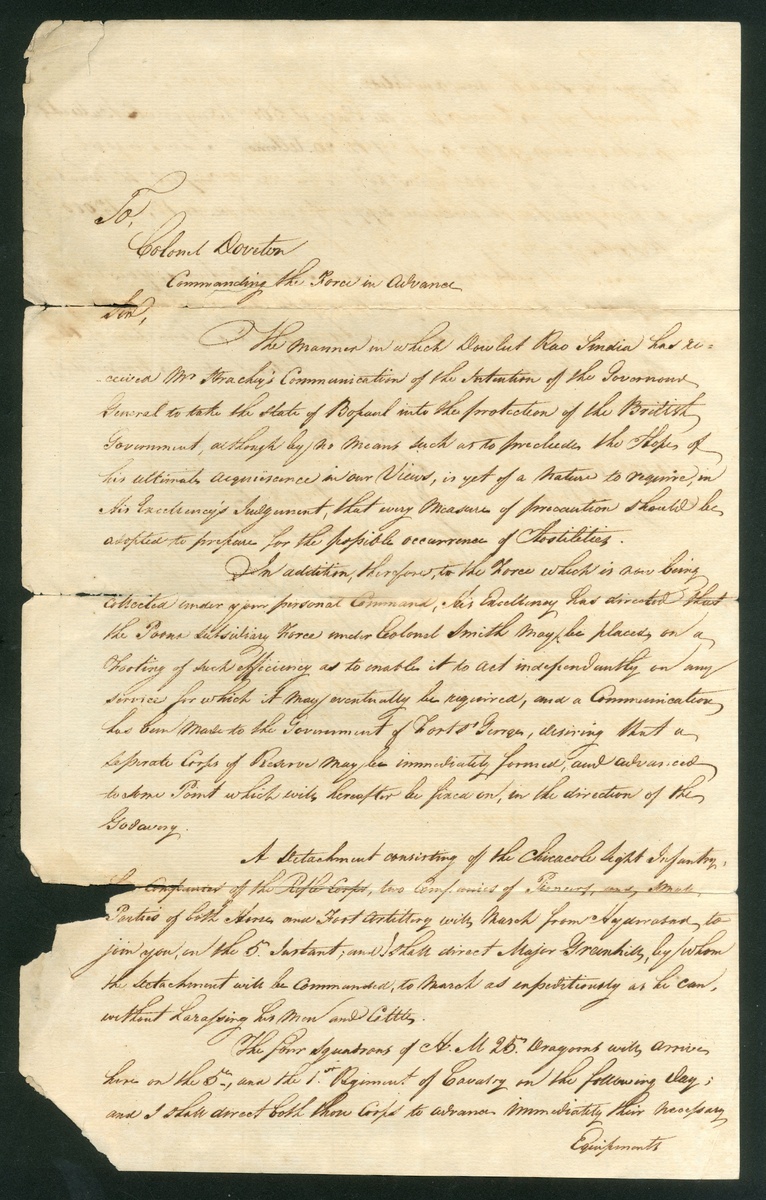 To,
Colonel Doveton
Commanding the Force in Advance
Sir,
The Manner in which Dowlut Rao Sindia has re=
=ceived Mr Strachey's Communication of the Intention of the Governour
General to take the State of Bopaul into the protection of the British
Government, although by no Means such as to preclude the Hope of
his ultimate acquiescence in our Views, is yet of a Nature to require, in
His Excellency's Judgement, that every Measure of precaution should be
adopted to prepare for the possible occurrence of Hostilities.
In addition, therefore, to the Force which is now being
collected under your personal Command, His Excellency has directed that
the Poona Subsidiary Force under Colonel Smith May be placed on a
Footing of such efficiency as to enable it to act independantly on any
service for which it May eventually be required, and a Communication
has been Made to the Government of Fort St George, desiring that a
separate Corps of Reserve May be immediately formed, and advanced
to some Point which will hereafter be fixed on, in the direction of the
Godavery.
A Detachment consisting of the Chicacole Light Infantry,
Companies of the Rifle Corps, two Companies of Pioneers, and small
Parties of both Horse and Foot Artillery will March from Hydrabad to
join you, on the 5. Instant; and I shall direct Major Greenhill, by whom
the Detachment will be Commanded, to March as expeditiously as he can,
without harassing his Men and Cattle.
The four Squadrons of H. M 25th Dragoons will arrive
here on the 5th, and the 1st Regiment of Cavalry on the following day;
and I shall direct both those Corps to advance immediately their necessary
Equipments